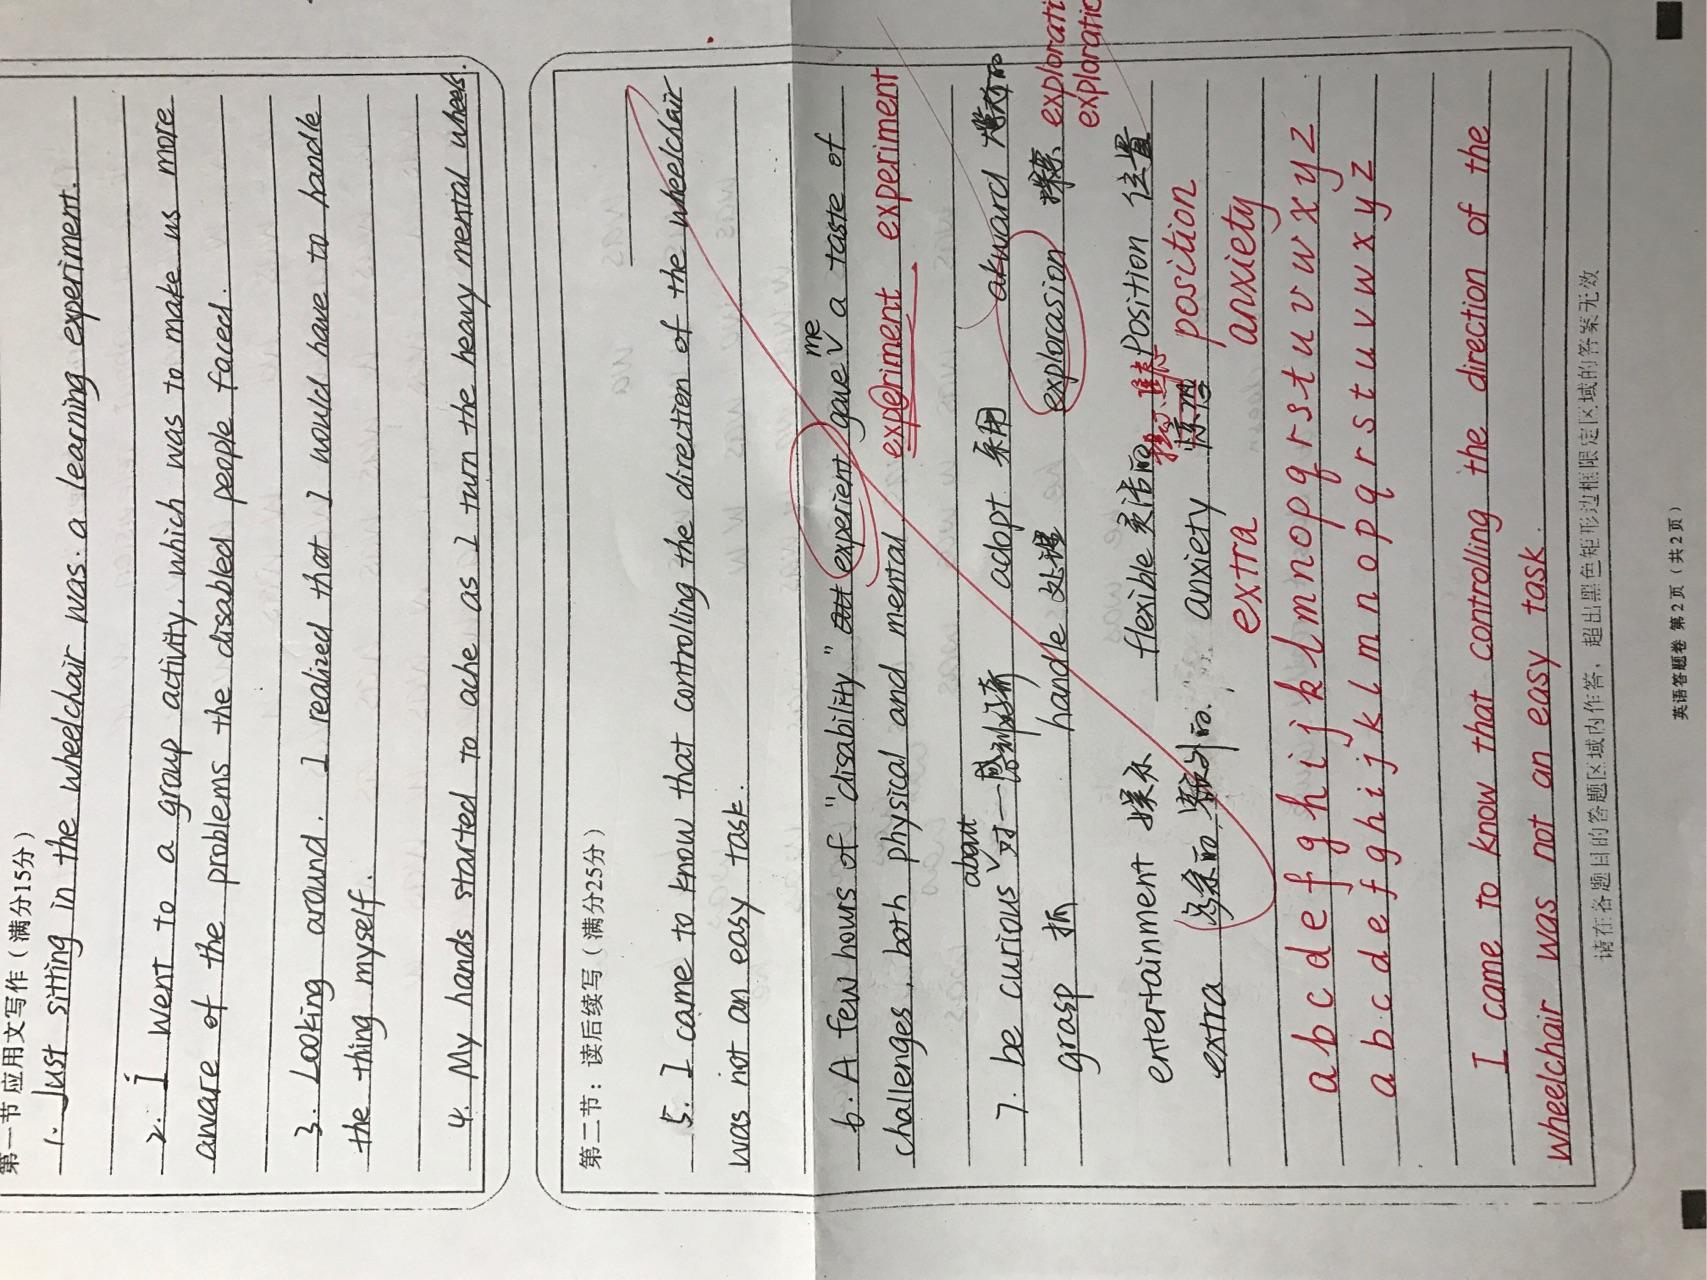 第一节 应用文写作（满分15分）
1. Just sitting in the wheelchair was a learning experiment.
2. I went to a group activity, which was to make us more
aware of the problems the disabled people faced.
3. Looking around. I realized that I would have to handle
the thing myself.
4. My hands started to ache as I turn the heavy mental wheels.
第二节：读后续写（满分25分）
5. I came to know that controlling the direction of the wheelchair
was not an easy task.
me
6. A few hours of "disability" experient gave a taste of
challenges, both physical and mental experiment experiment
about
7. be curious 对一感到好奇 adopt 采用 akward 尴尬的
grasp 抓 handle 处理 explorasion 探索
entertainment 娱乐 flexible 灵活的 Position 位置
position
extra 额外的 anxiety 惊恐
anxiety
extra
a b c d e f g h i j k l m n o p q r s t u v w x y z
a b c d e f g h i j k l m n o p q r s t u v w x y z
I came to know that controlling the direction of the
wheelchair was not an easy task.
请在各题目的答题区域内作答，超出黑色矩形边框限定区域的答案无效
英语答题卷 第2页（共2页）